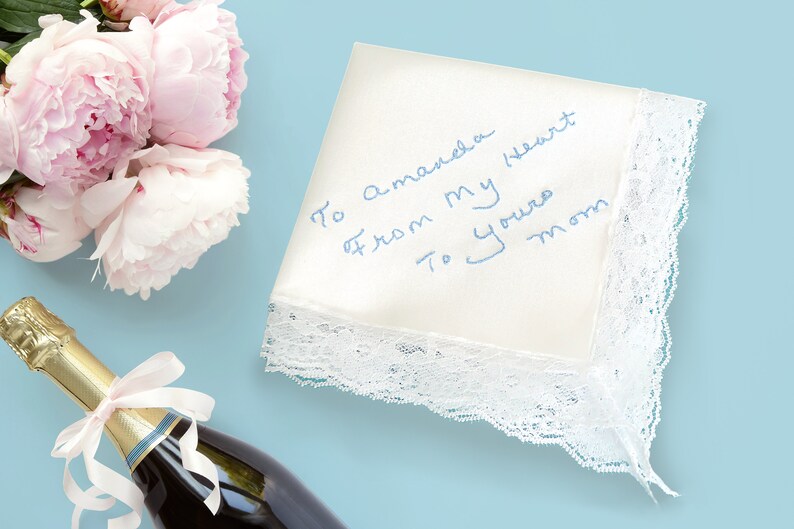 To amanda
From My Heart
To Yours
Mom